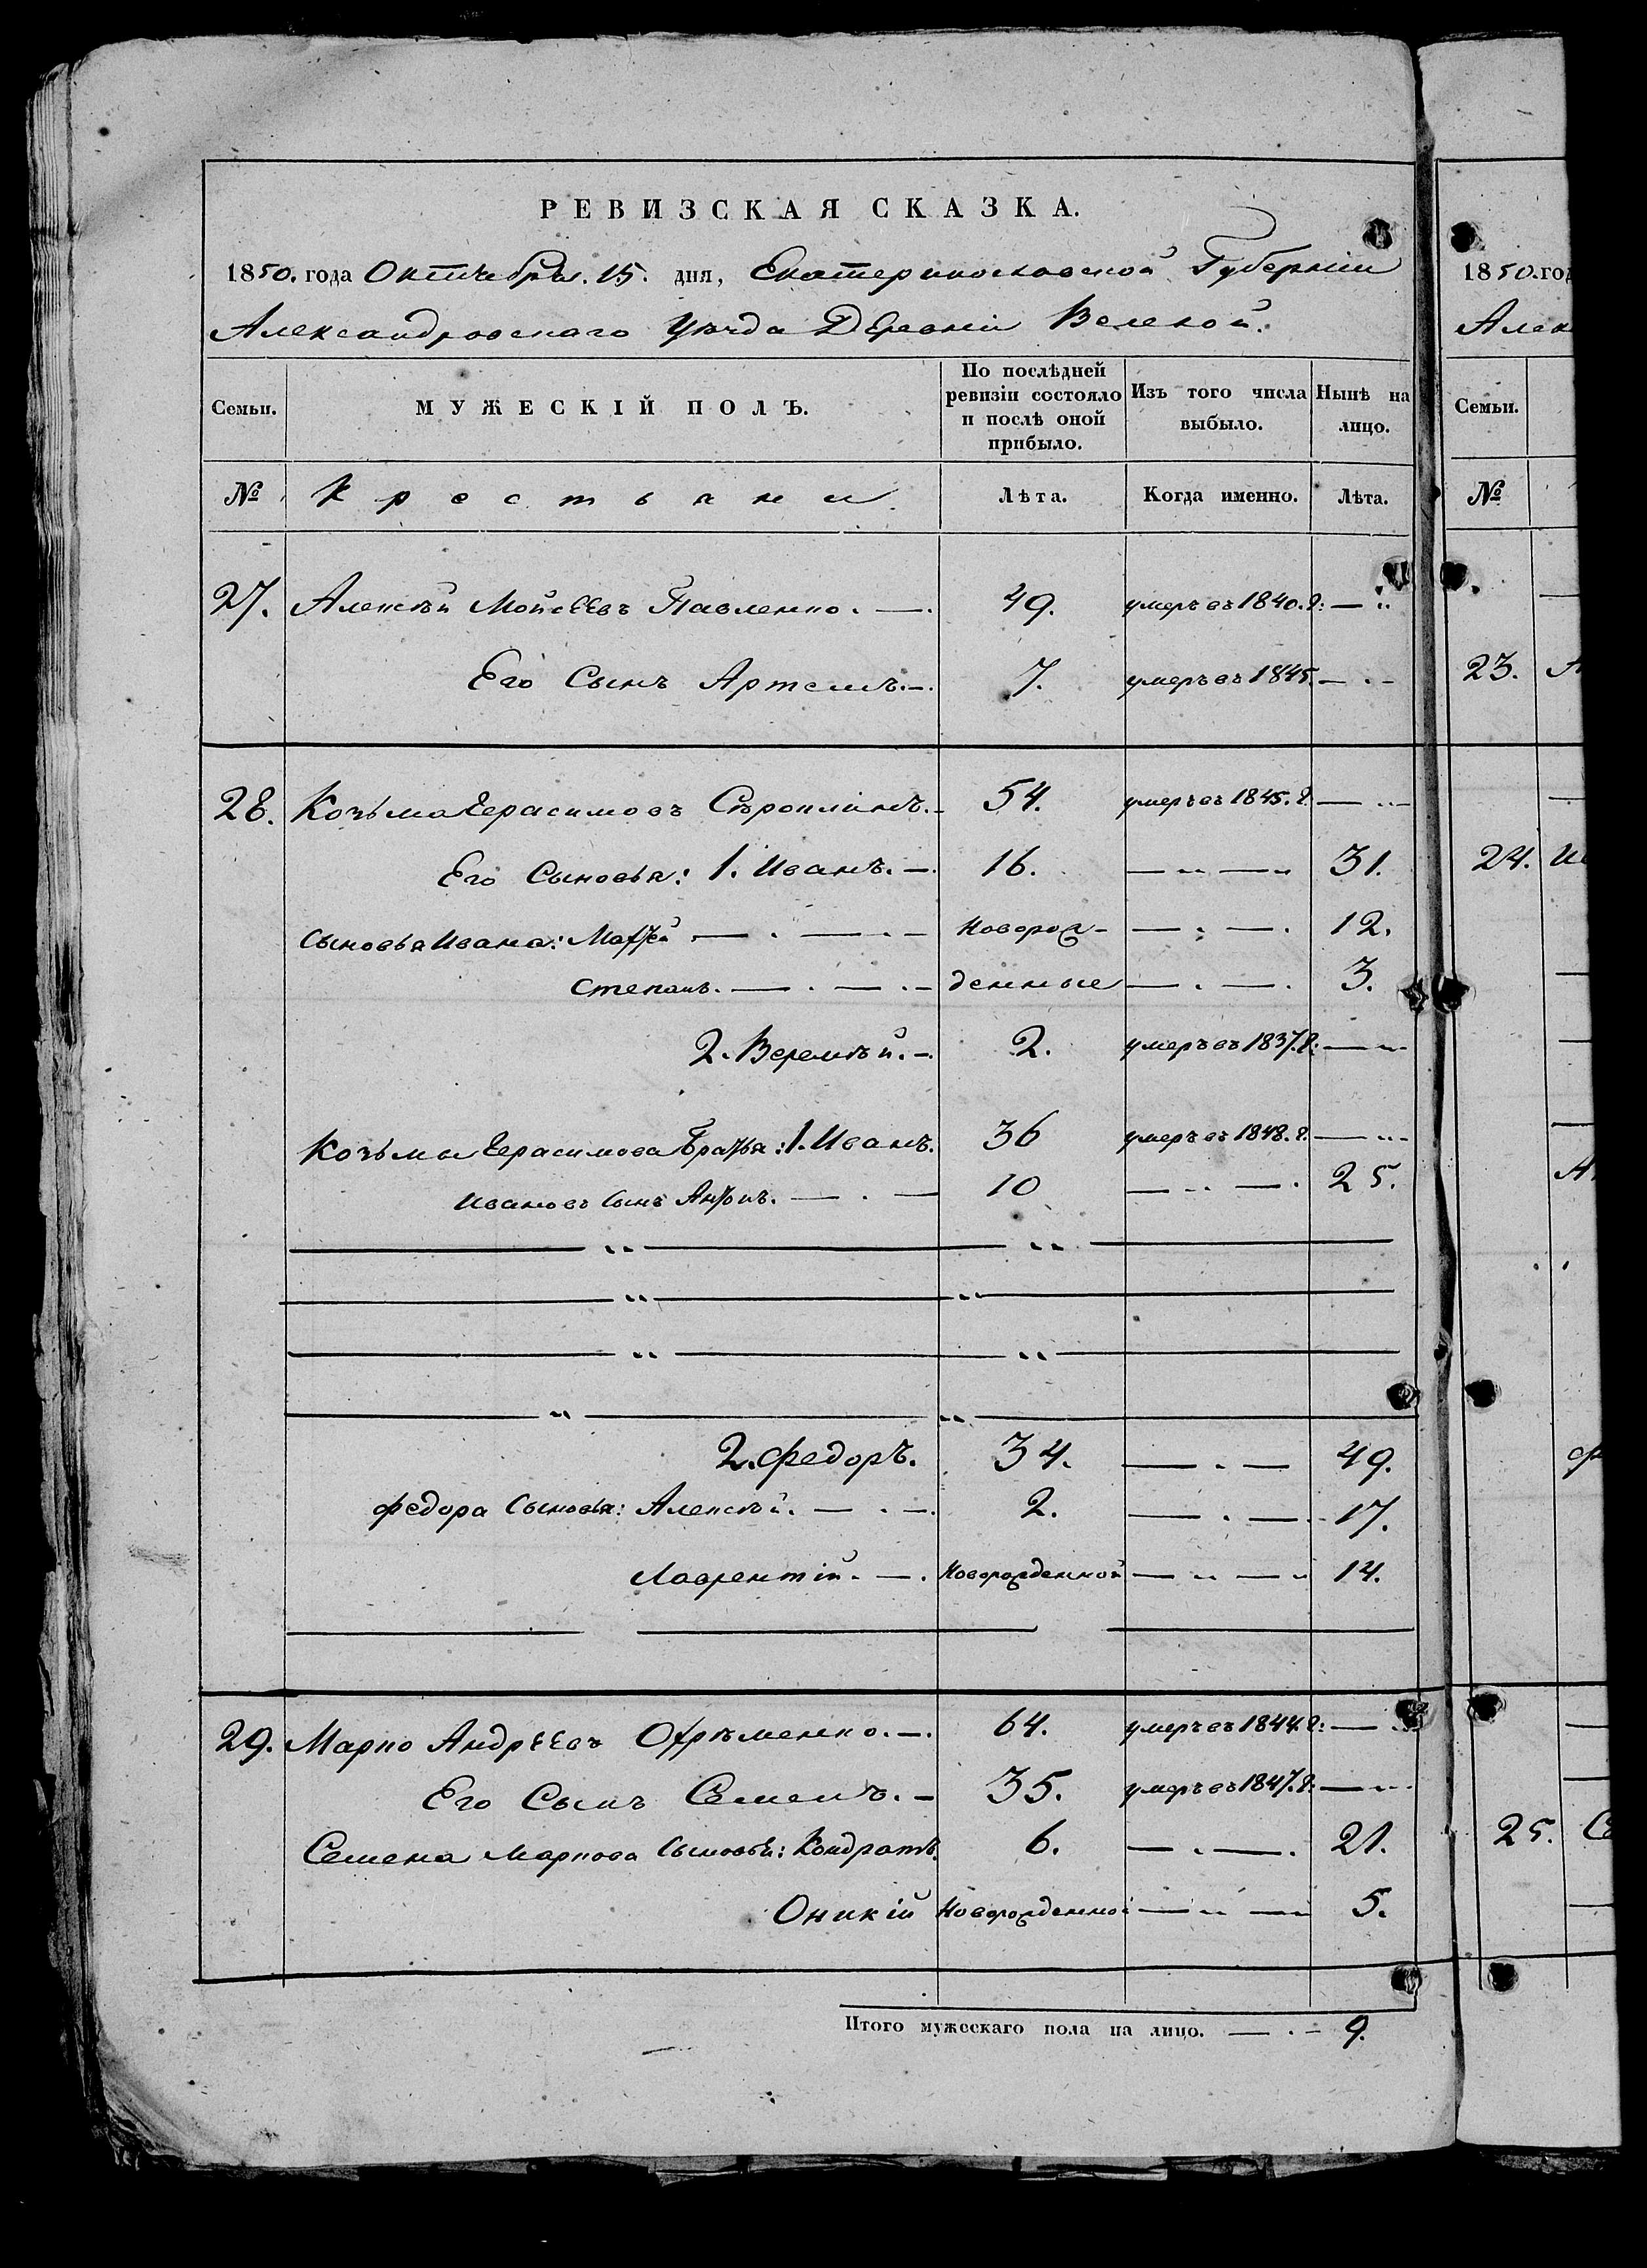 РЕВИЗСКАЯ СКАЗКА.
1850. года Октября. 15. дня, Екатеринославской Губерніи
Александровскаго Уѣзда Деревни
Семьи. МУЖЕСКІЙ ПОЛЪ. По послѣдней ревизіи состояло и послѣ оной прибыло. Изъ того числа выбыло. Нынѣ на лицо.
№ Крестьяни Лѣта. Когда именно. Лѣта.
27. Алексѣй Мойсеевъ Павленко. 49. умеръ въ 1840. г:
Его Сынъ Артемъ. 7. умеръ въ 1845.
28. Козьма Герасимовъ 54. умеръ въ 1845. г.
Его Сыновья: 1. Иванъ. 16. 31.
Сыновья Ивана: Матфей Новорож- 12.
Степанъ. денные 3.
2. Веремѣй. 2. умеръ въ 1837. г:
Козьмы Герасимова Братья: 1. Иванъ. 36 умеръ въ 1848. г.
Ивановъ Сынъ Антонъ. 10 25.
2. Федоръ. 34. 49.
Федора Сыновья: Алексѣй. 2. 17.
Лаврентій. Новорожденной 14.
29. Марко Андреевъ 64. умеръ въ 1844. г:
Его Сынъ Семенъ. 35. умеръ въ 1847. г:
Семена Маркова Сыновья: Кондратъ. 6. 21.
Оникій Новорожденной 5.
Итого мужескаго пола на лицо. 9.
1850. год
Алек
Семьи.
№
23.
24.
25.